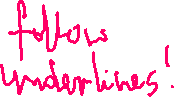 follow
underlines!